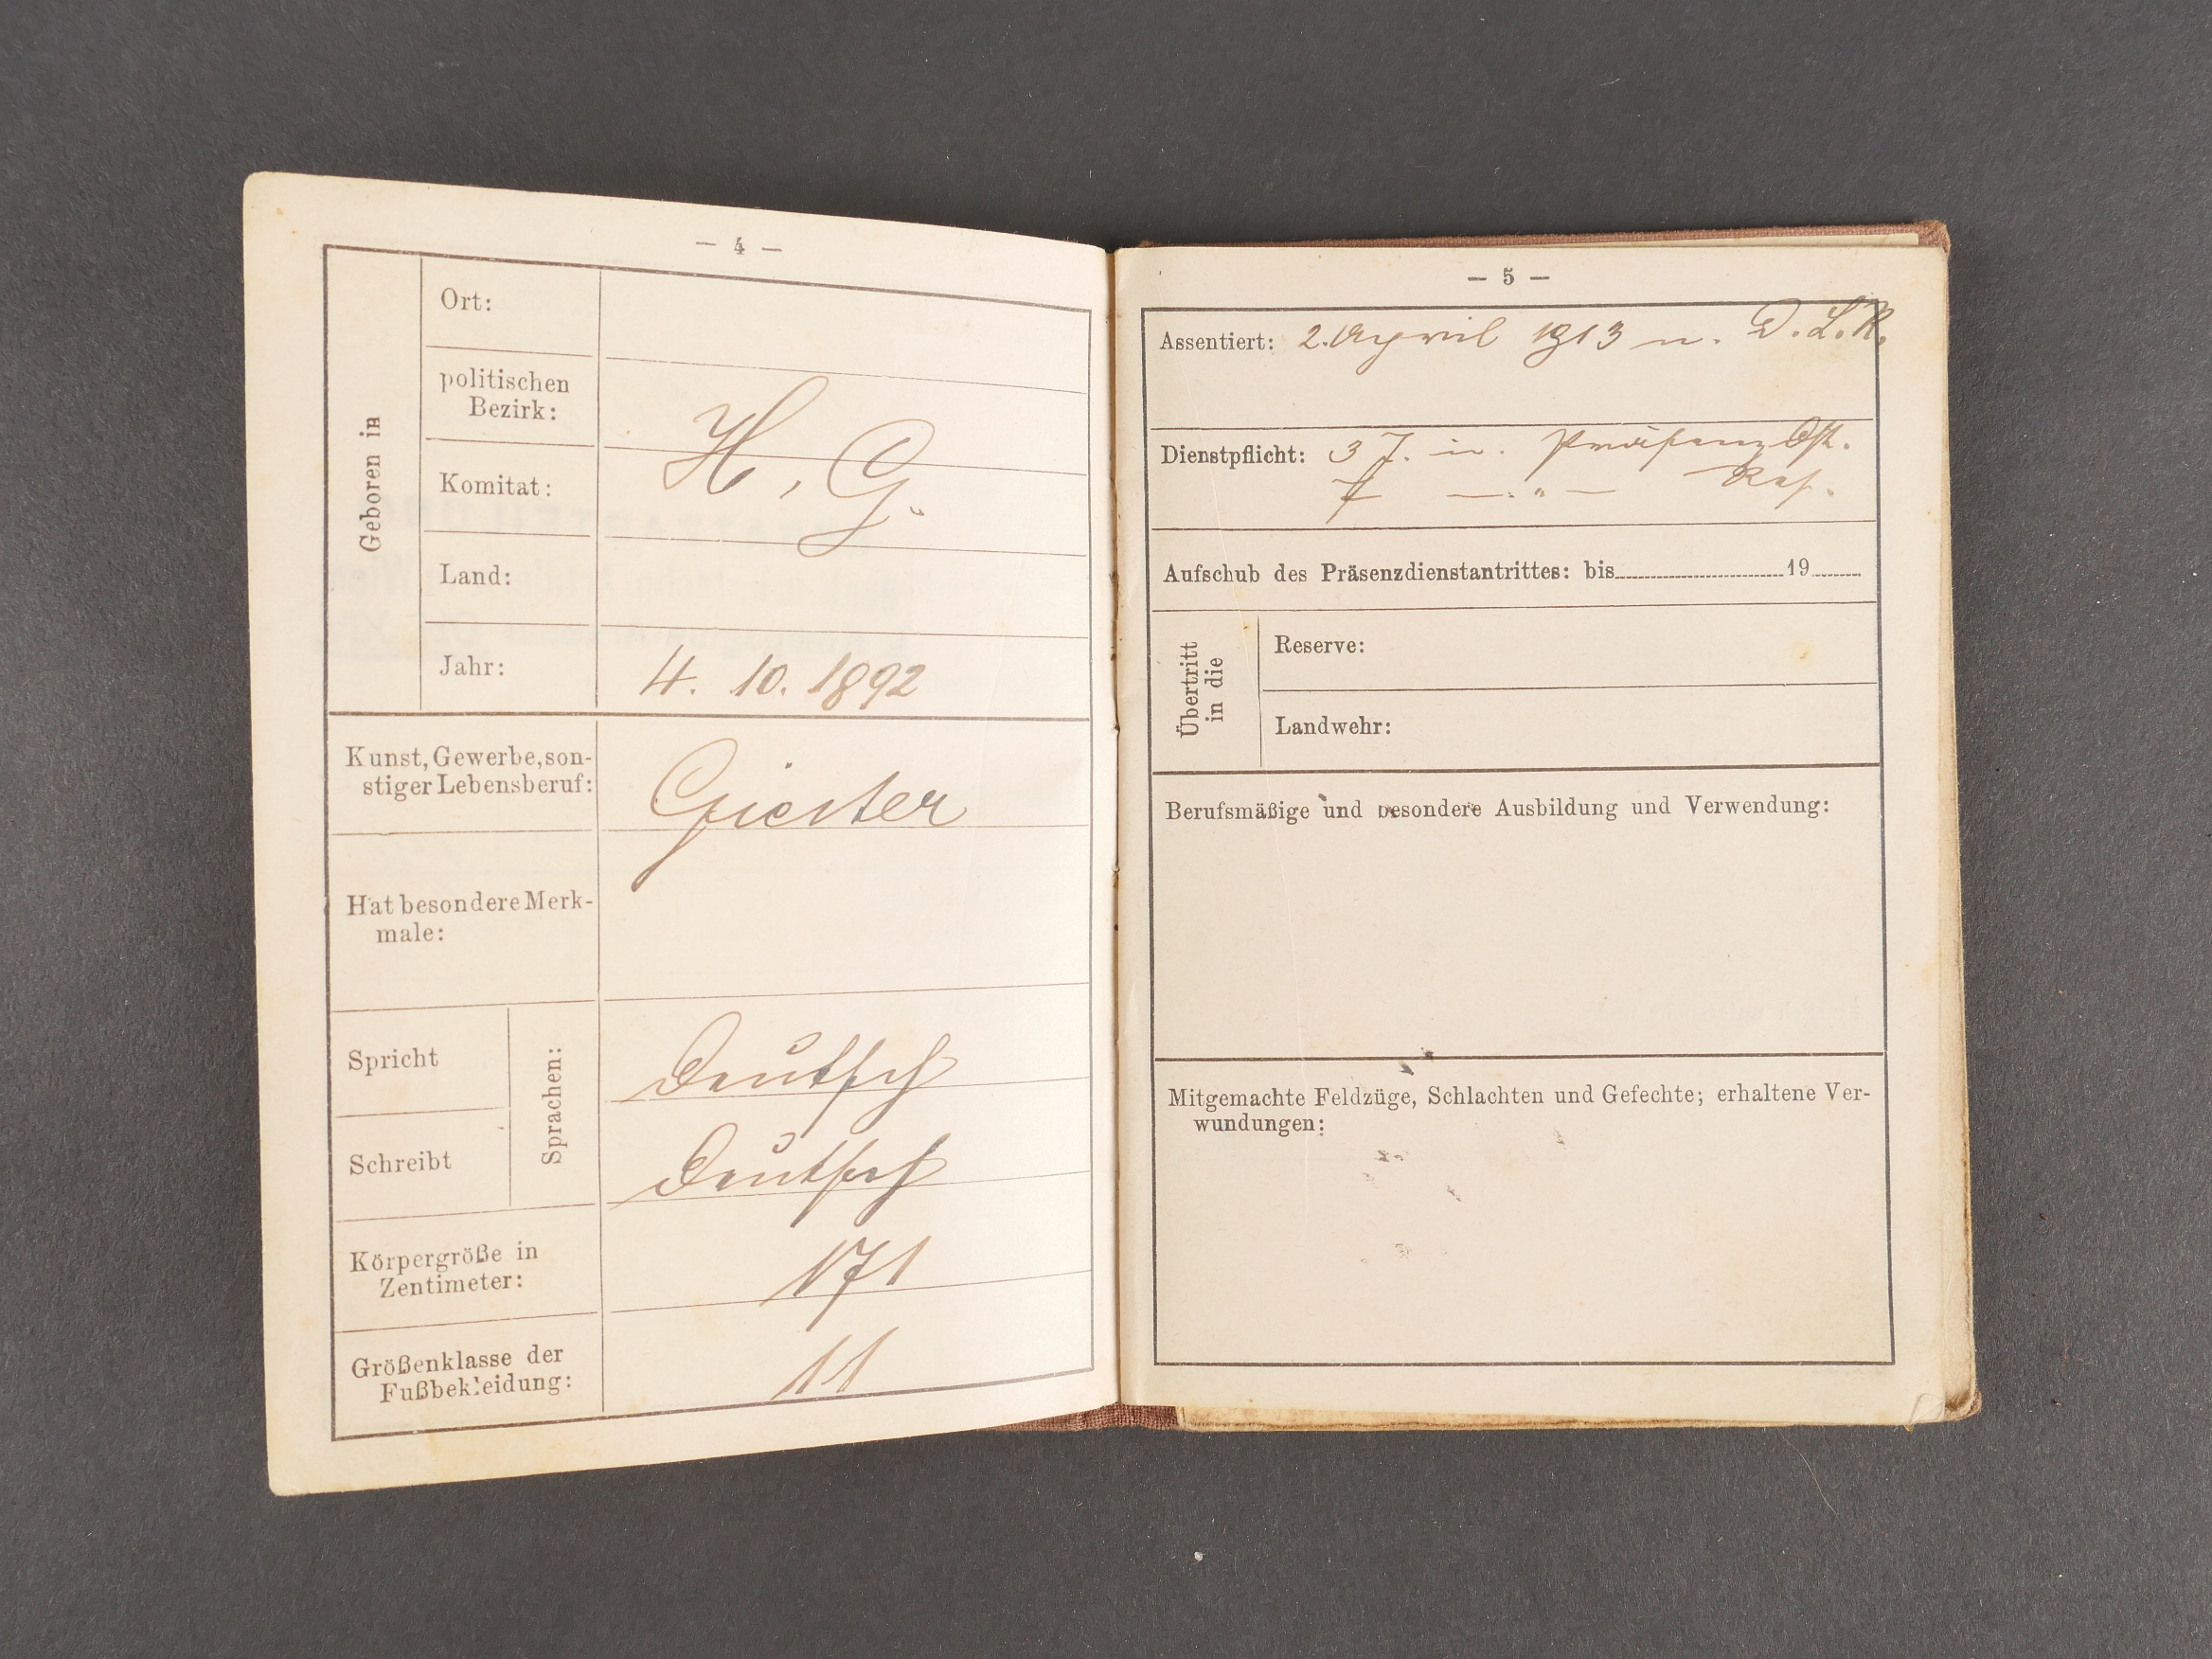 — 4 —
Geboren in
Ort:
politischen
Bezirk:
Komitat:
H. G.
Land:
Jahr: 4. 10. 1892
Kunst, Gewerbe, son-
stiger Lebensberuf:
Hat besondere Merk-
male:
Sprachen:
Spricht Deutsch
Schreibt Deutsch
Körpergröße in
Zentimeter: 171
Größenklasse der
Fußbekleidung: 11
— 5 —
Assentiert: 2. April 1913 n. D. L. R.
Dienstpflicht: 3 J. in. Präsenz Dst.
7 — " — Res.
Aufschub des Präsenzdienstantrittes: bis 19
Übertritt
in die
Reserve:
Landwehr:
Berufsmäßige und besondere Ausbildung und Verwendung:
Mitgemachte Feldzüge, Schlachten und Gefechte; erhaltene Ver-
wundungen: